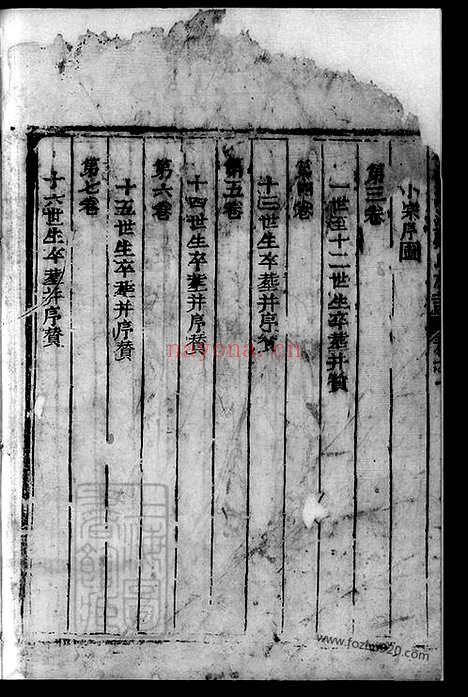 小宗序圖
第三卷
一世至十二世生卒墓并贊
第四卷
十三世生卒墓并序贊
第五卷
十四世生卒墓并序贊
第六卷
十五世生卒墓并序贊
第七卷
十六世生卒墓并序贊
nayona.cn
www.fozu...20.com